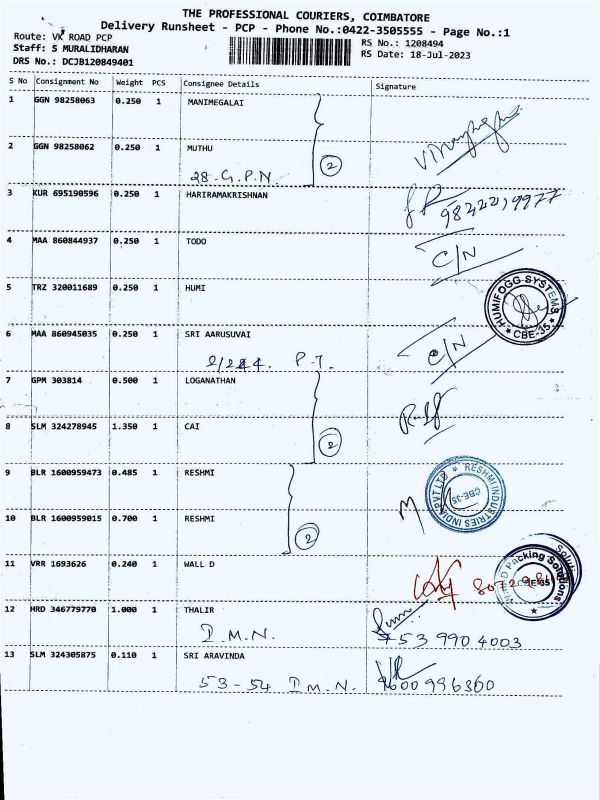 THE PROFESSIONAL COURIERS, COIMBATORE
Delivery Runsheet - PCP - Phone No.:0422-3505555 - Page No.:1
Route: VK ROAD PCP
RS No.: 1208494
Staff: S MURALIDHARAN
RS Date: 18-Jul-2023
DRS No.: DCJB120849401
S No Consignment No Weight PCS Consignee Details Signature
1 GGN 98258063 0.250 1 MANIMEGALAI
2 GGN 98258062 0.250 1 MUTHU
28-G.P.N. 2
3 KUR 695190596 0.250 1 HARIRAMAKRISHNAN
9842219977
4 MAA 860844937 0.250 1 TODO
C/N
5 TRZ 320011689 0.250 1 HUMI
HUMIFOGG SYSTEMS
* CBE-35 *
6 MAA 860945035 0.250 1 SRI AARUSUVAI
P.T. C/N
7 GPM 303814 0.500 1 LOGANATHAN
8 SLM 324278945 1.350 1 CAI
2
9 BLR 1600959473 0.485 1 RESHMI
RESHMI INDUSTRIES INDIA PVT LTD *
CBE-35
10 BLR 1600959015 0.700 1 RESHMI
2
11 VRR 1693626 0.240 1 WALL D
Packing Solutions
CBE-35
12 HRD 346779770 1.000 1 THALIR
D.M.N. 753 990 4003
13 SLM 324305875 0.110 1 SRI ARAVINDA
53-54 D.M.N. 9600996300